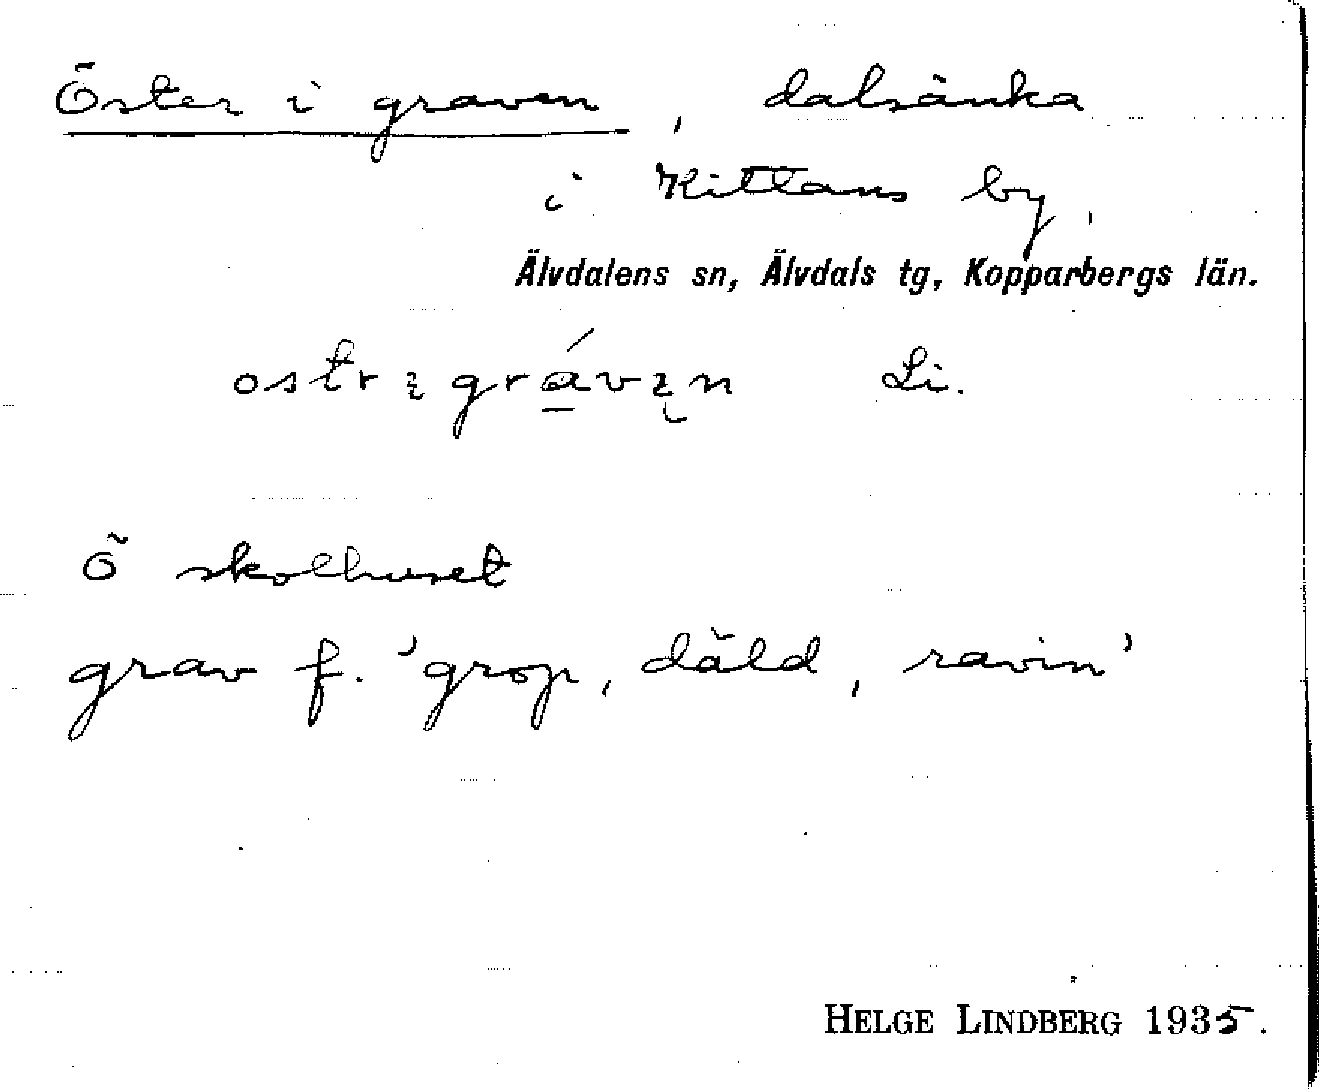 Öster i graven, dalsänka
i Kittans by,
Älvdalens sn, Älvdals tg, Kopparbergs län.
Li.
Ö skolhuset
grav f. 'grop, däld, ravin'
HELGE LINDBERG 1935.